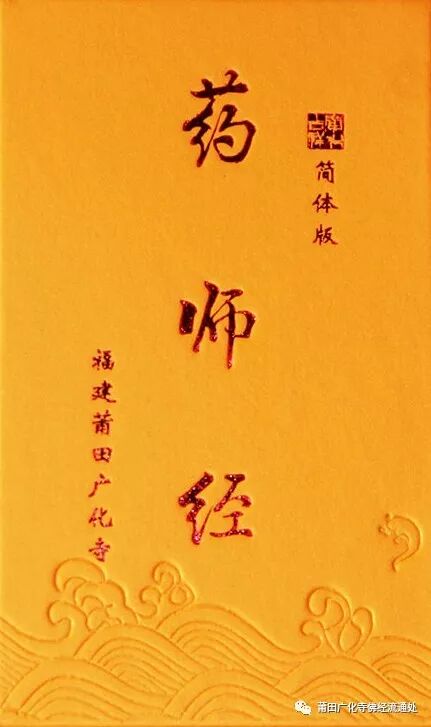 简体版
药师经
福建莆田广化寺
莆田广化寺佛经流通处